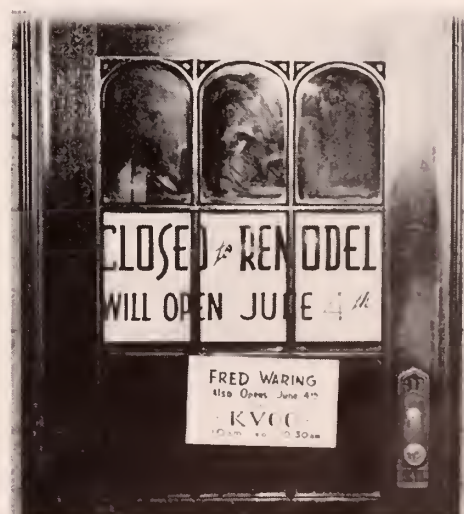 CLOSED to REMODEL
WILL OPEN JUNE 4th
FRED WARING
Also Opens June 4th
KVOO